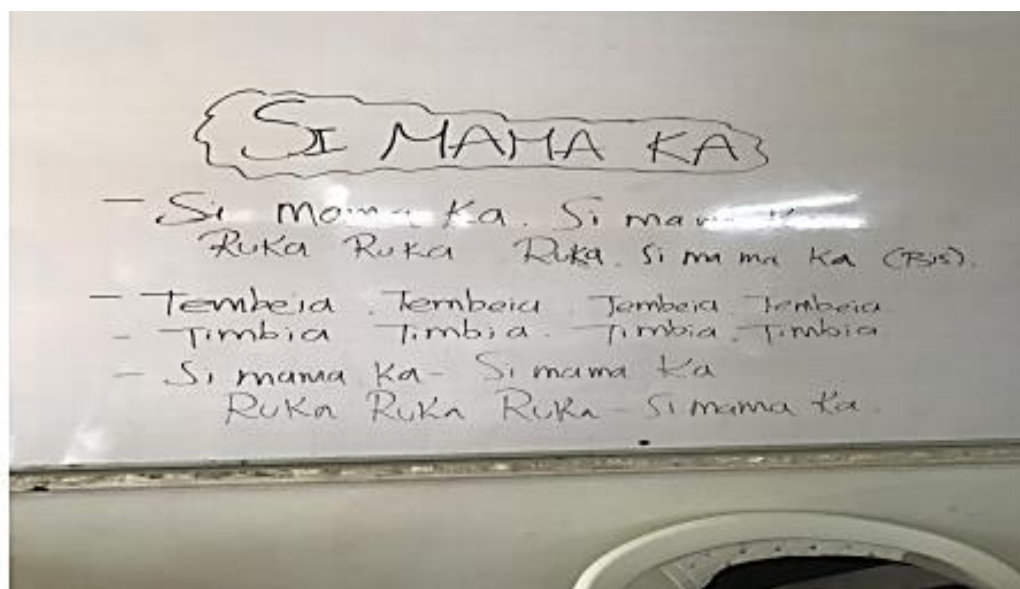 SI MAMA KA
- Si mama Ka. Si mama
Ruka Ruka Ruka. Si ma ma Ka (Bis).
- Tembeia. Tembeia. Tembeia. Tembeia
- Timbia Timbia. Timbia. Timbia
- Si mama Ka - Si mama Ka
RuKa RuKa RuKa - Si mama Ka.